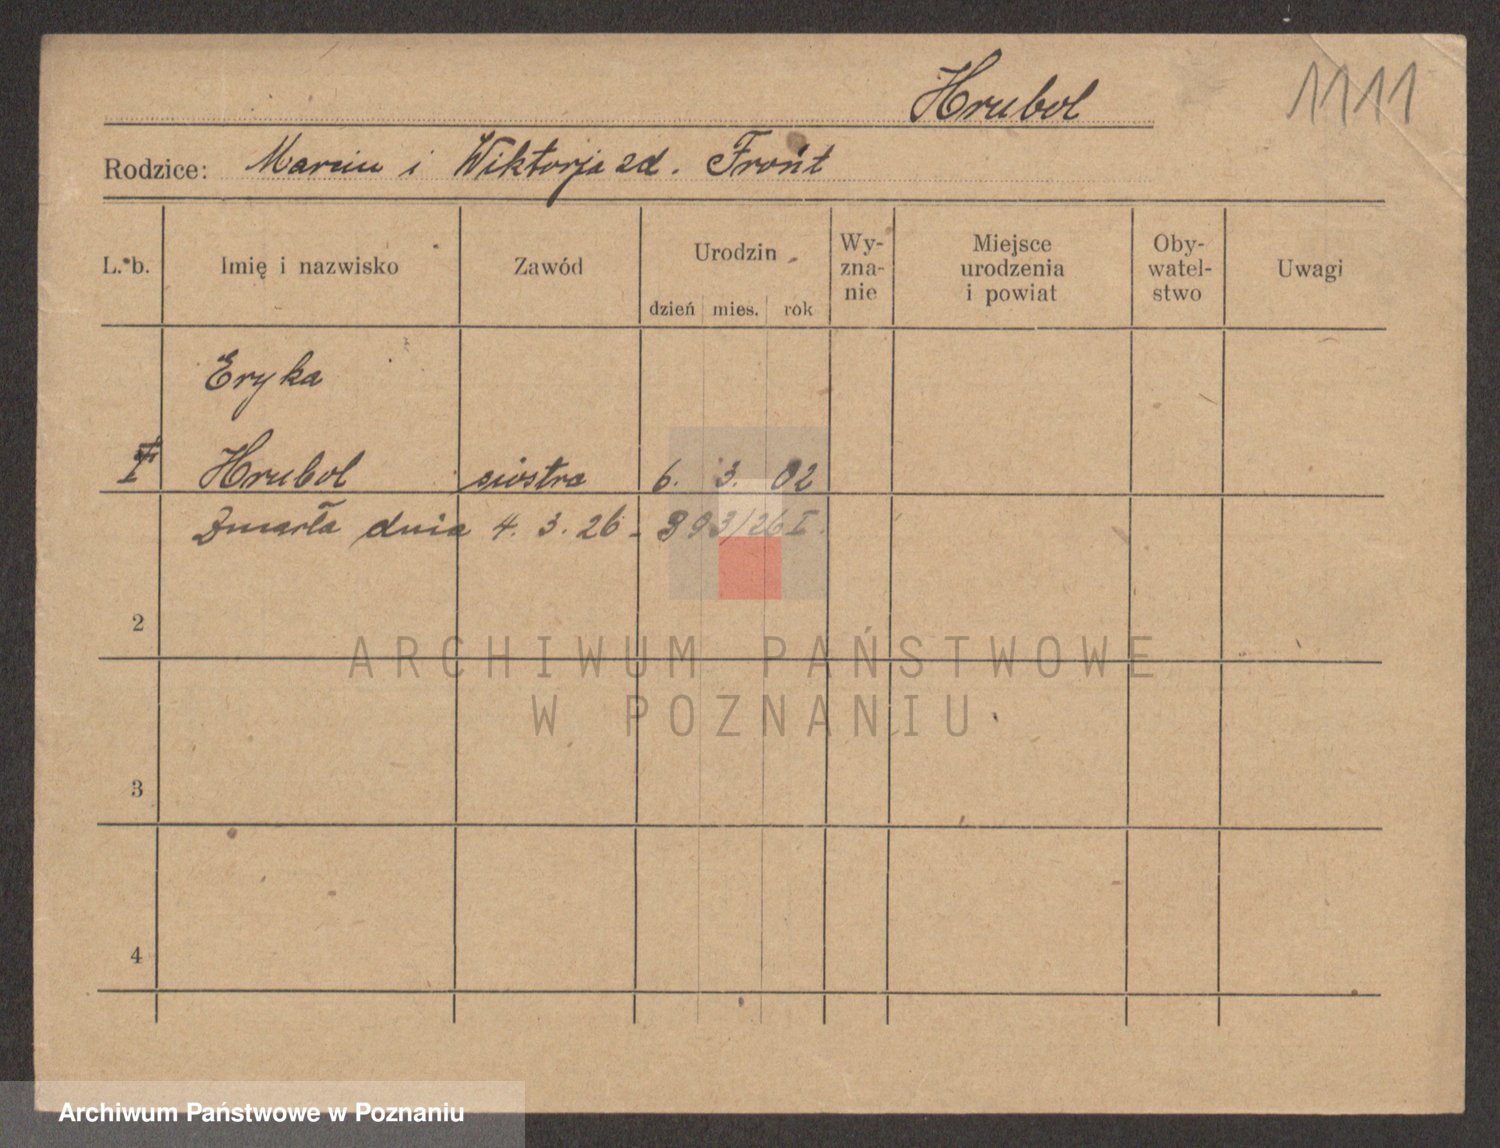 Hrubol
1111
Rodzice: Marcin i Wiktorja zd. Front
L. b. Imię i nazwisko Zawód Urodzin dzień mies. rok Wy-zna-nie Miejsce urodzenia i powiat Oby-watel-stwo Uwagi
Eryka
Hrubol siostra 6. 3. 02
Zmarła dnia 4. 3. 26 - 393/26 I.
2
ARCHIWUM PAŃSTWOWE
W POZNANIU
3
4
Archiwum Państwowe w Poznaniu